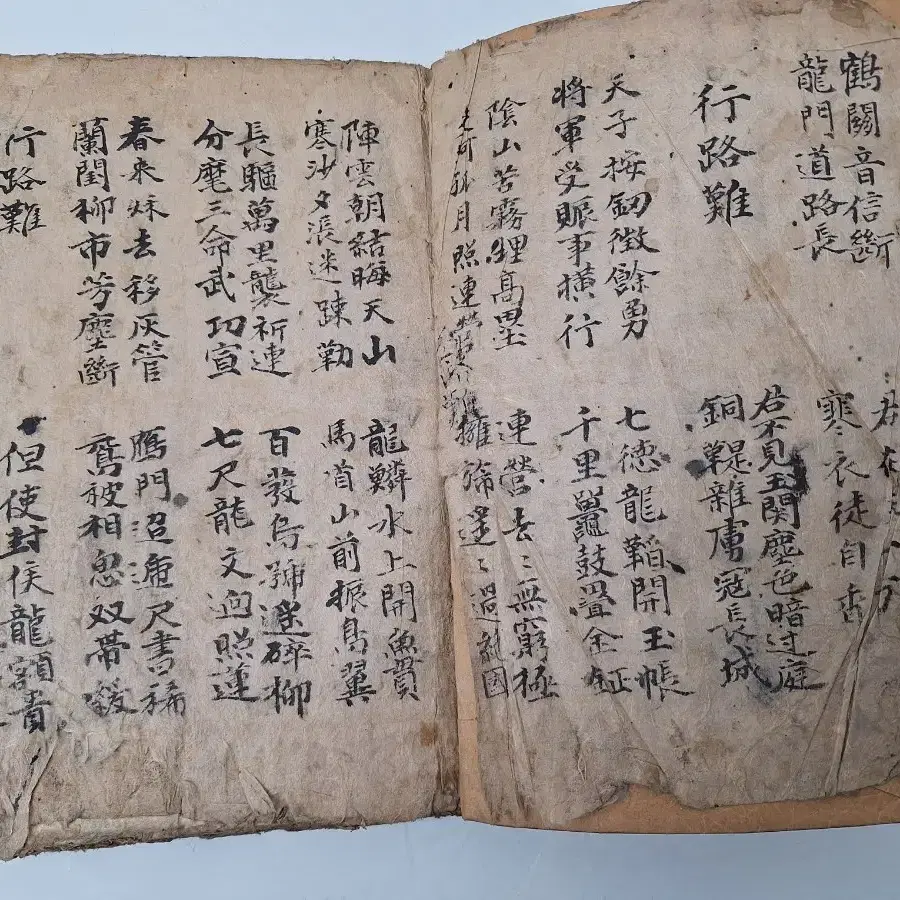 鶴關音信斷
龍門道路長
君在
寒衣徒自香
行路難
君不見玉関塵色暗过庭
銅鞮雜虜寇長城
天子按釰徵餘勇
將軍受賑事横行
七德龍韜開玉帳
千里鼉鼓疊金鉦
陰山苦霧貍高壘
交河孤月照連營
連營去〻無窮極
擁旆遙〻過國
陣雲朝結晦天山
寒沙夕漲迷踈勒
龍鱗水上開魚貫
馬首山前振鳥翼
長驅萬里襲祈連
分麾三命武功宣
百發烏號遙碎柳
七尺龍文逈照蓮
春来秌去移灰管
蘭閨柳市芳塵斷
鴈門迢逓尺書稀
鴛被相思双带緩
行路難
但使封侯龍額貴